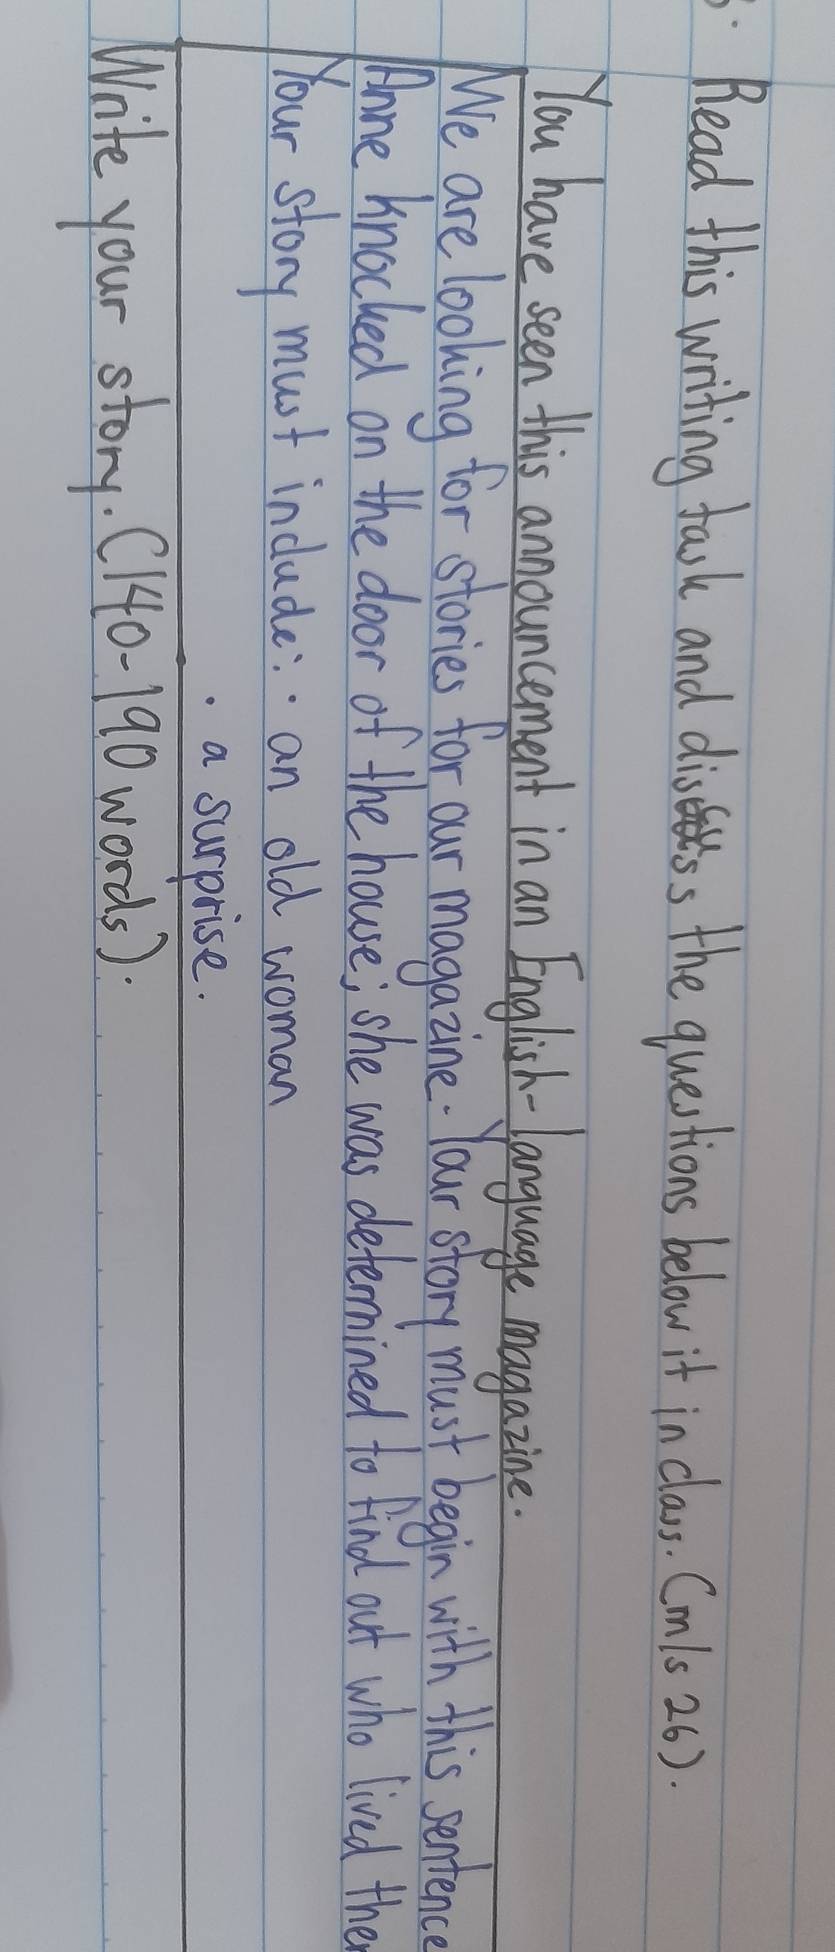 Read this writing task and discuss the questions below it in class. (m/s 26).
You have seen this announcement in an English-language magazine.
We are looking for stories for our magazine. Your story must begin with this sentence
Anne knocked on the door of the house; she was determined to find out who lived ther
Your story must include: • an old woman
• a surprise.
Write your story. (140-190 words).